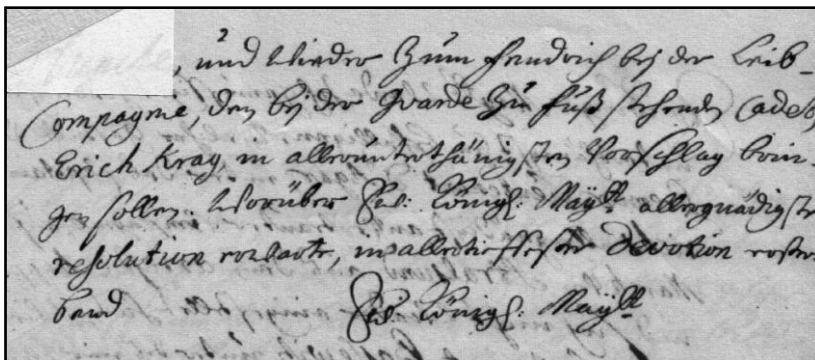 , und wieder zum fendrich bej der Leib-
Compagnie, den bej der Guarde zu fuß stehenden Cadet,
Erich Krag, in allerunterthänigsten Vorschlag brin-
gen sollen. Worüber Ew: Königl: Maytt allergnädigste
resolution erwarte, in allertieffester devotion erster-
bend Ew: Königl: Maytt